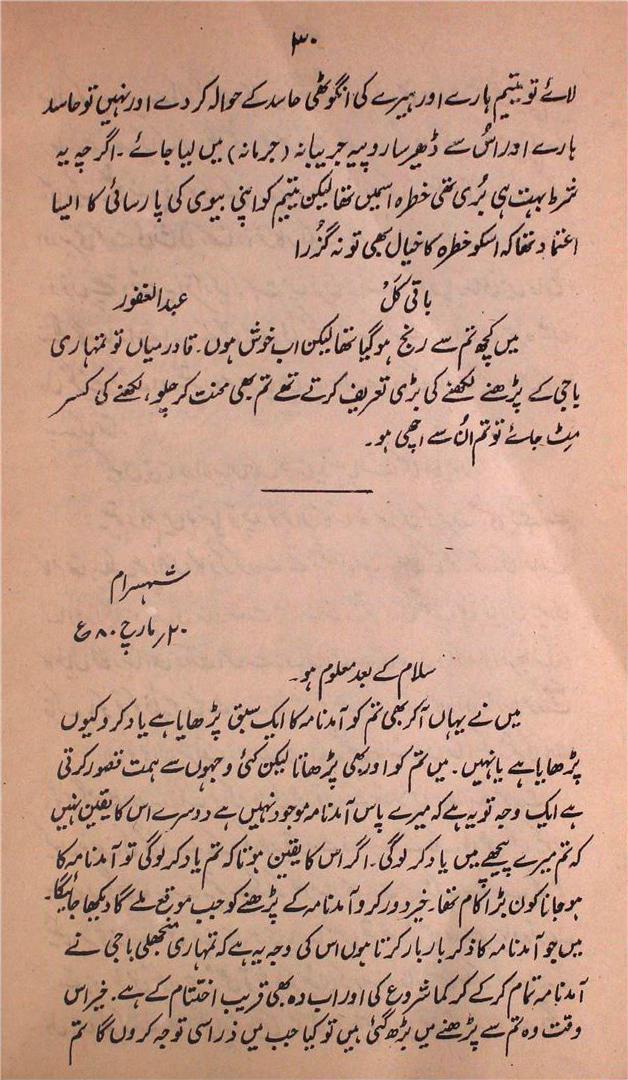 ۳۰
لائے تو یتیم ہارے اور ہیرے کی انگوٹھی حاسد کے حوالہ کر دے اور نہیں تو حاسد
ہارے اور اُس سے ڈھیر سا روپیہ جریبانہ (جرمانہ) میں لیا جائے۔ اگرچہ یہ
شرط بہت ہی بُری تھی خطرہ اسمیں تھا لیکن یتیم کو اپنی بیوی کی پارسائی کا ایسا
اعتماد تھا کہ اسکو خطرہ کا خیال بھی تو نہ گزُرا
باقی کَلْ عبدالغفور
میں کچھ تم سے رنج ہو گیا تھا لیکن اب خوش ہوں۔ قادر میاں تو تمہاری
باجی کے پڑھنے لکھنے کی بڑی تعریف کرتے تھے تم بھی محنت کر چلو، لکھنے کی کسر
مِٹ جائے تو تم اُن سے اچھی ہو۔
شہسرام
۲۰؍ مارچ ۸۰ء
سلام کے بعد معلوم ہو۔
میں نے یہاں آکر بھی تم کو آمدنامہ کا ایک سبق پڑھایا ہے یاد کرو کیوں
پڑھایا ہے یا نہیں۔ میں تم کو اور بھی پڑھاتا لیکن کئی وجہوں سے ہمت قصور کرتی
ہے ایک وجہ تو یہ ہے کہ میرے پاس آمدنامہ موجود نہیں ہے دوسرے اس کا یقین نہیں
کہ تم میرے پیچھے میں یاد کر لوگی۔ اگر اس کا یقین ہوتا کہ تم یاد کر لوگی تو آمدنامہ کا
ہو جانا کون بڑا کام تھا۔ خیر دور کرو آمدنامہ کے پڑھنے کو جب موقع ملے گا دیکھا جائیگا۔
میں جو آمدنامہ کا ذکر بار بار کرتا ہوں اس کی وجہ یہ ہے کہ تمہاری منجھلی باجی نے
آمدنامہ تمام کر کے کرکما شروع کی اور اب وہ بھی قریب اختتام کے ہے۔ خیر اس
وقت وہ تم سے پڑھنے میں بڑھ گئی ہیں تو کیا جب میں ذرا سی توجہ کروں گا تم